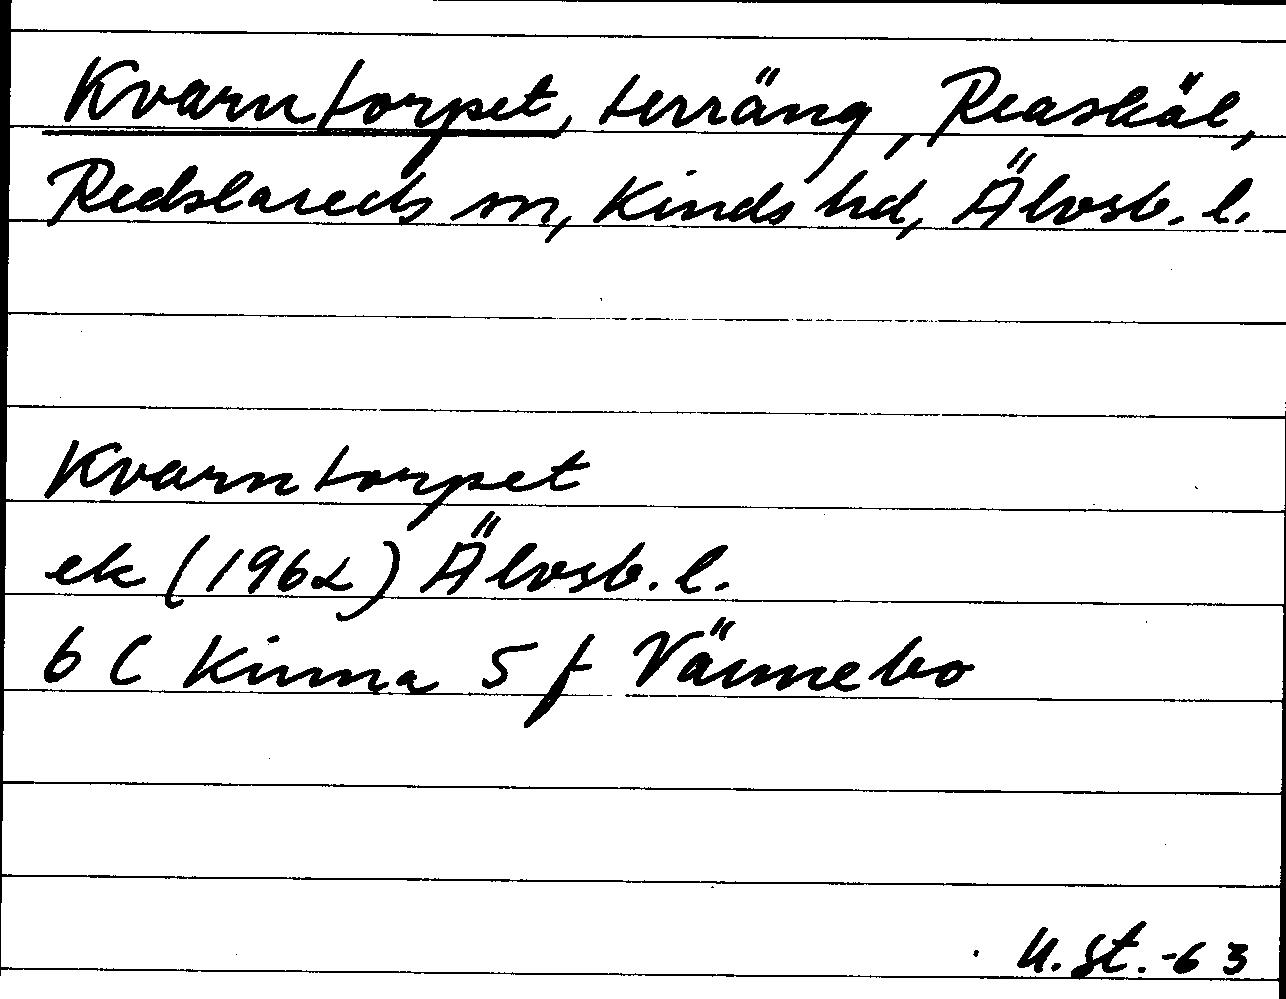 Kvarntorpet, terräng, Reaskäl,
Redslareds sn, Kinds hd, Älvsb. l.
Kvarntorpet
ek (1962) Älvsb. l.
6 C Kinna 5 f Vännebo
U.St.-63